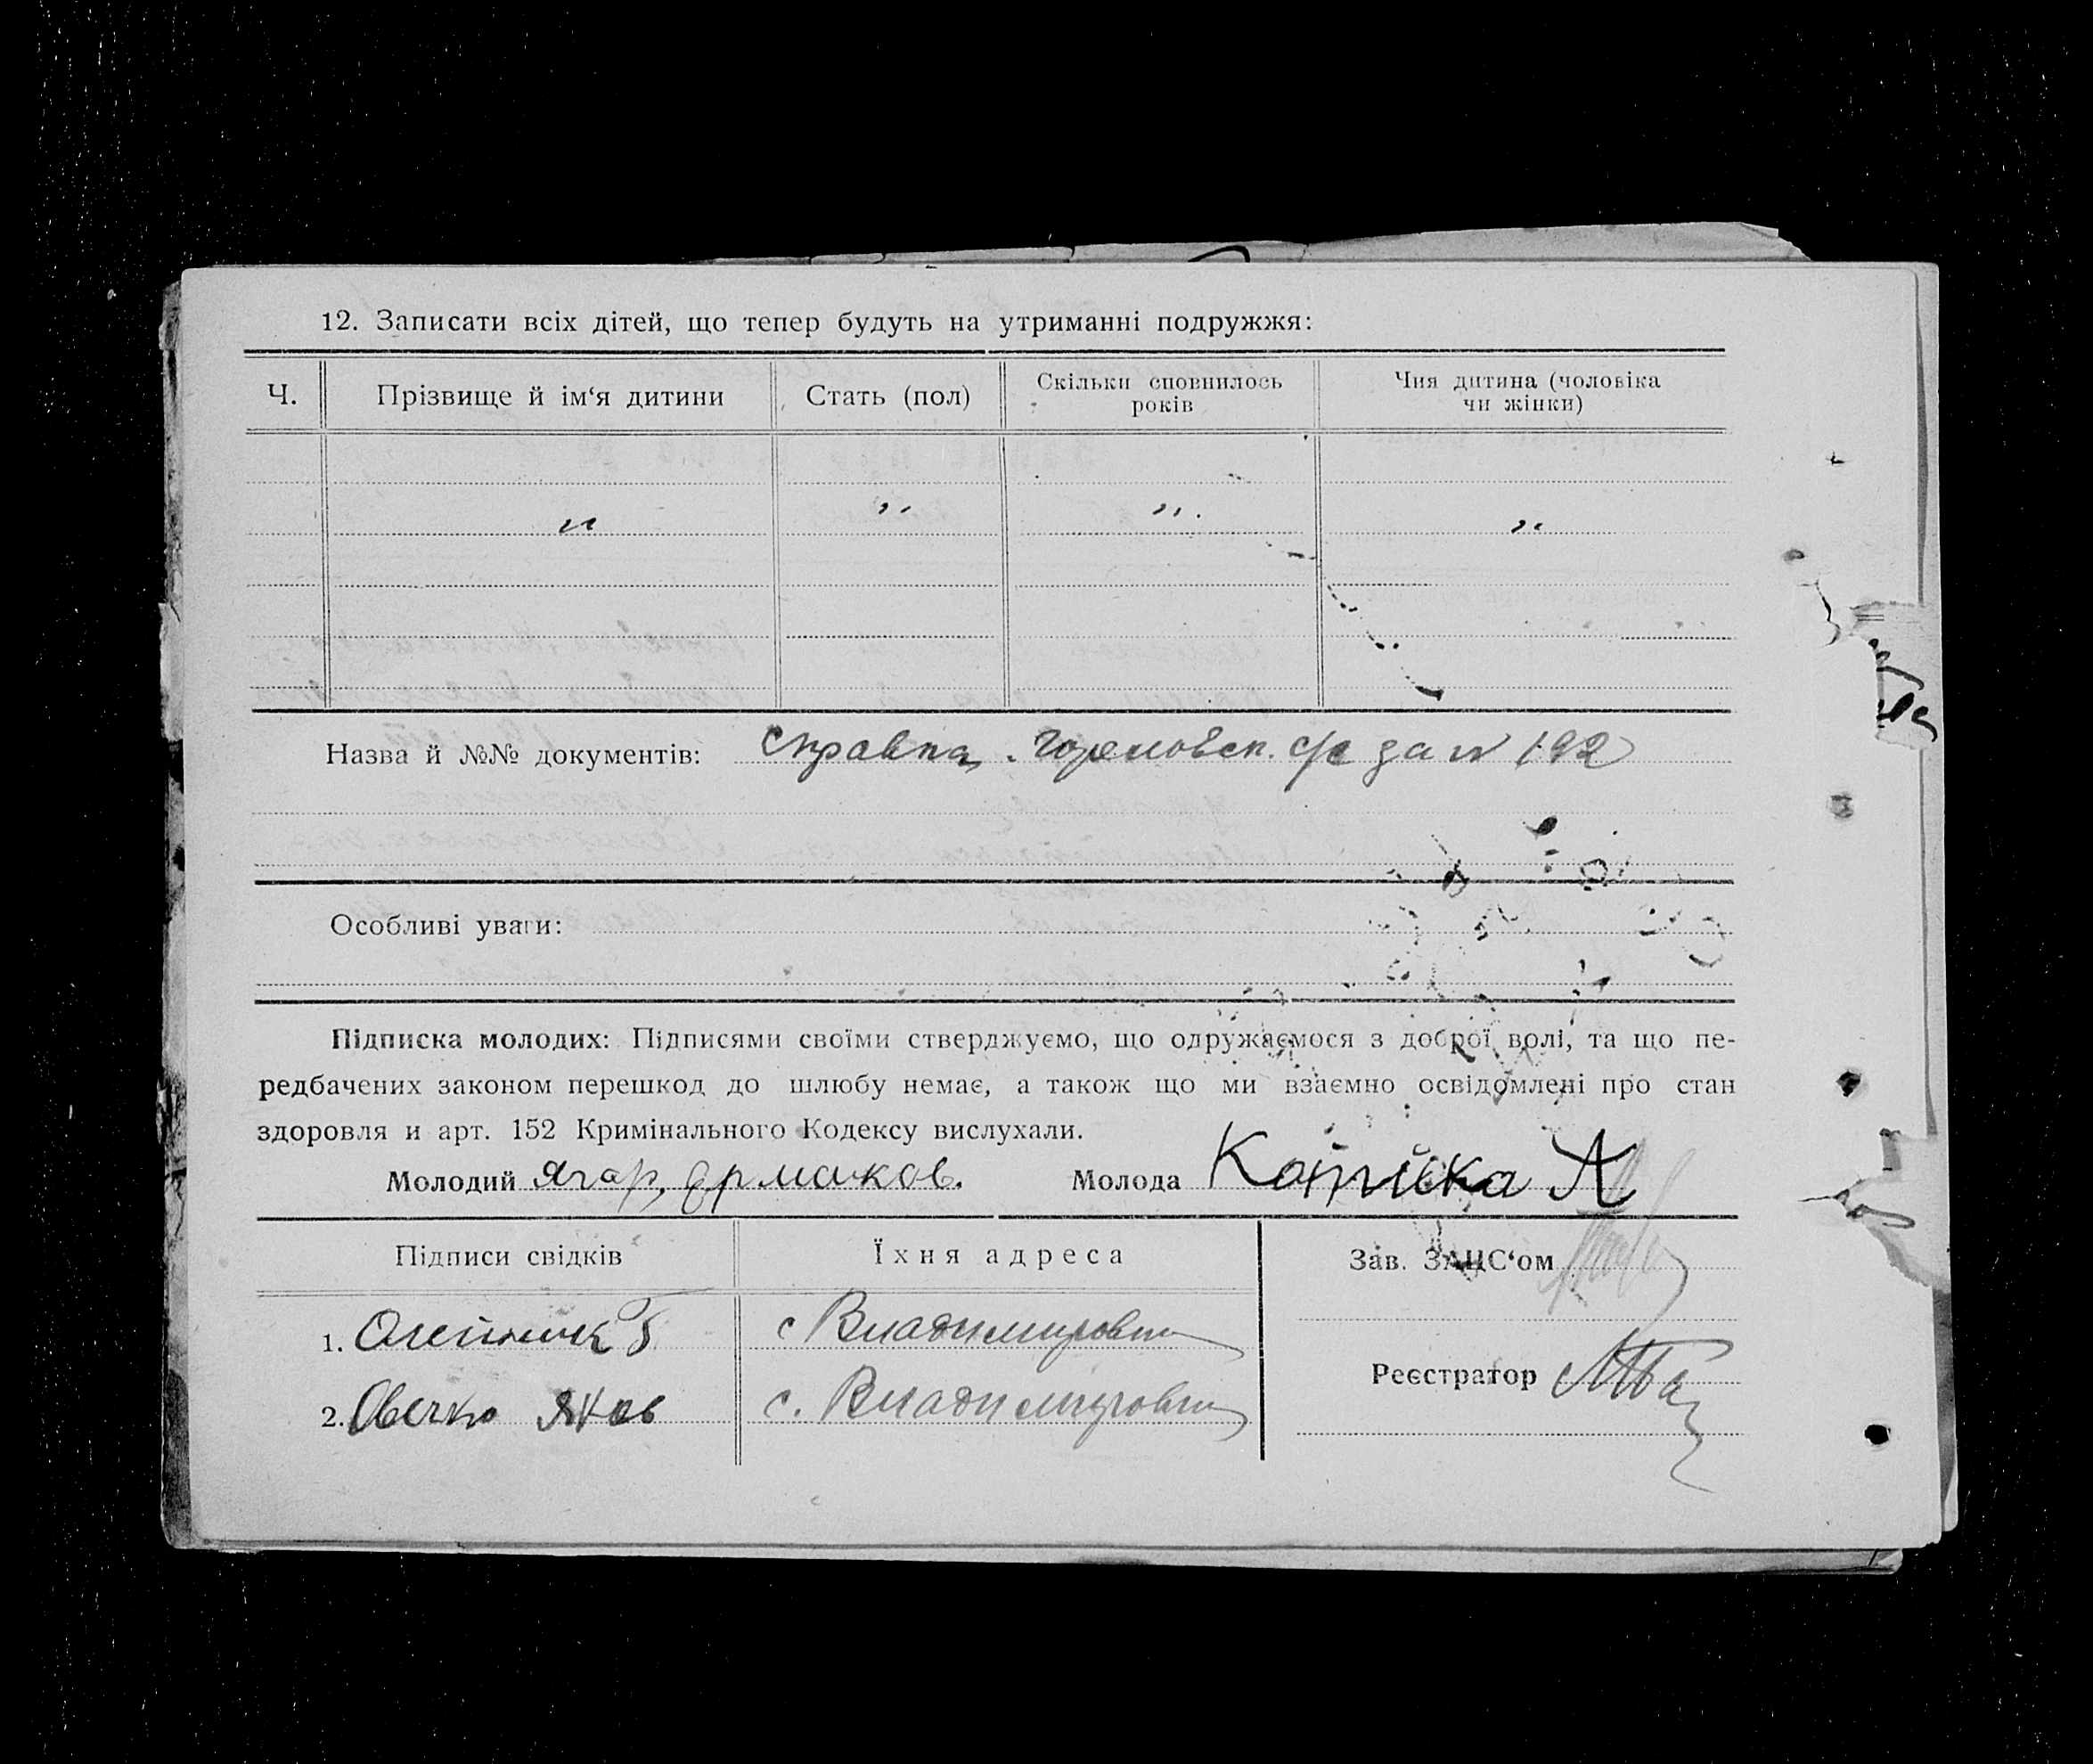 12. Записати всіх дітей, що тепер будуть на утриманні подружжя:
Ч. Прізвище й ім‘я дитини Стать (пол) Скільки сповнилось років Чия дитина (чоловіка чи жінки)
" " " "
Назва й №№ документів: Справка с/с за № 192
Особливі уваги:
Підписка молодих: Підписями своїми стверджуємо, що одружаємося з доброї волі, та що пе-
редбачених законом перешкод до шлюбу немає, а також що ми взаємно освідомлені про стан
здоровля и арт. 152 Кримінального Кодексу вислухали.
Молодий Ягар, Єрмаков. Молода А
Підписи свідків Їхня адреса Зав. ЗАЦС‘ом
1. Олейник Г с Владимировка
Реєстратор
2. Овечко Яков с. Владимировка